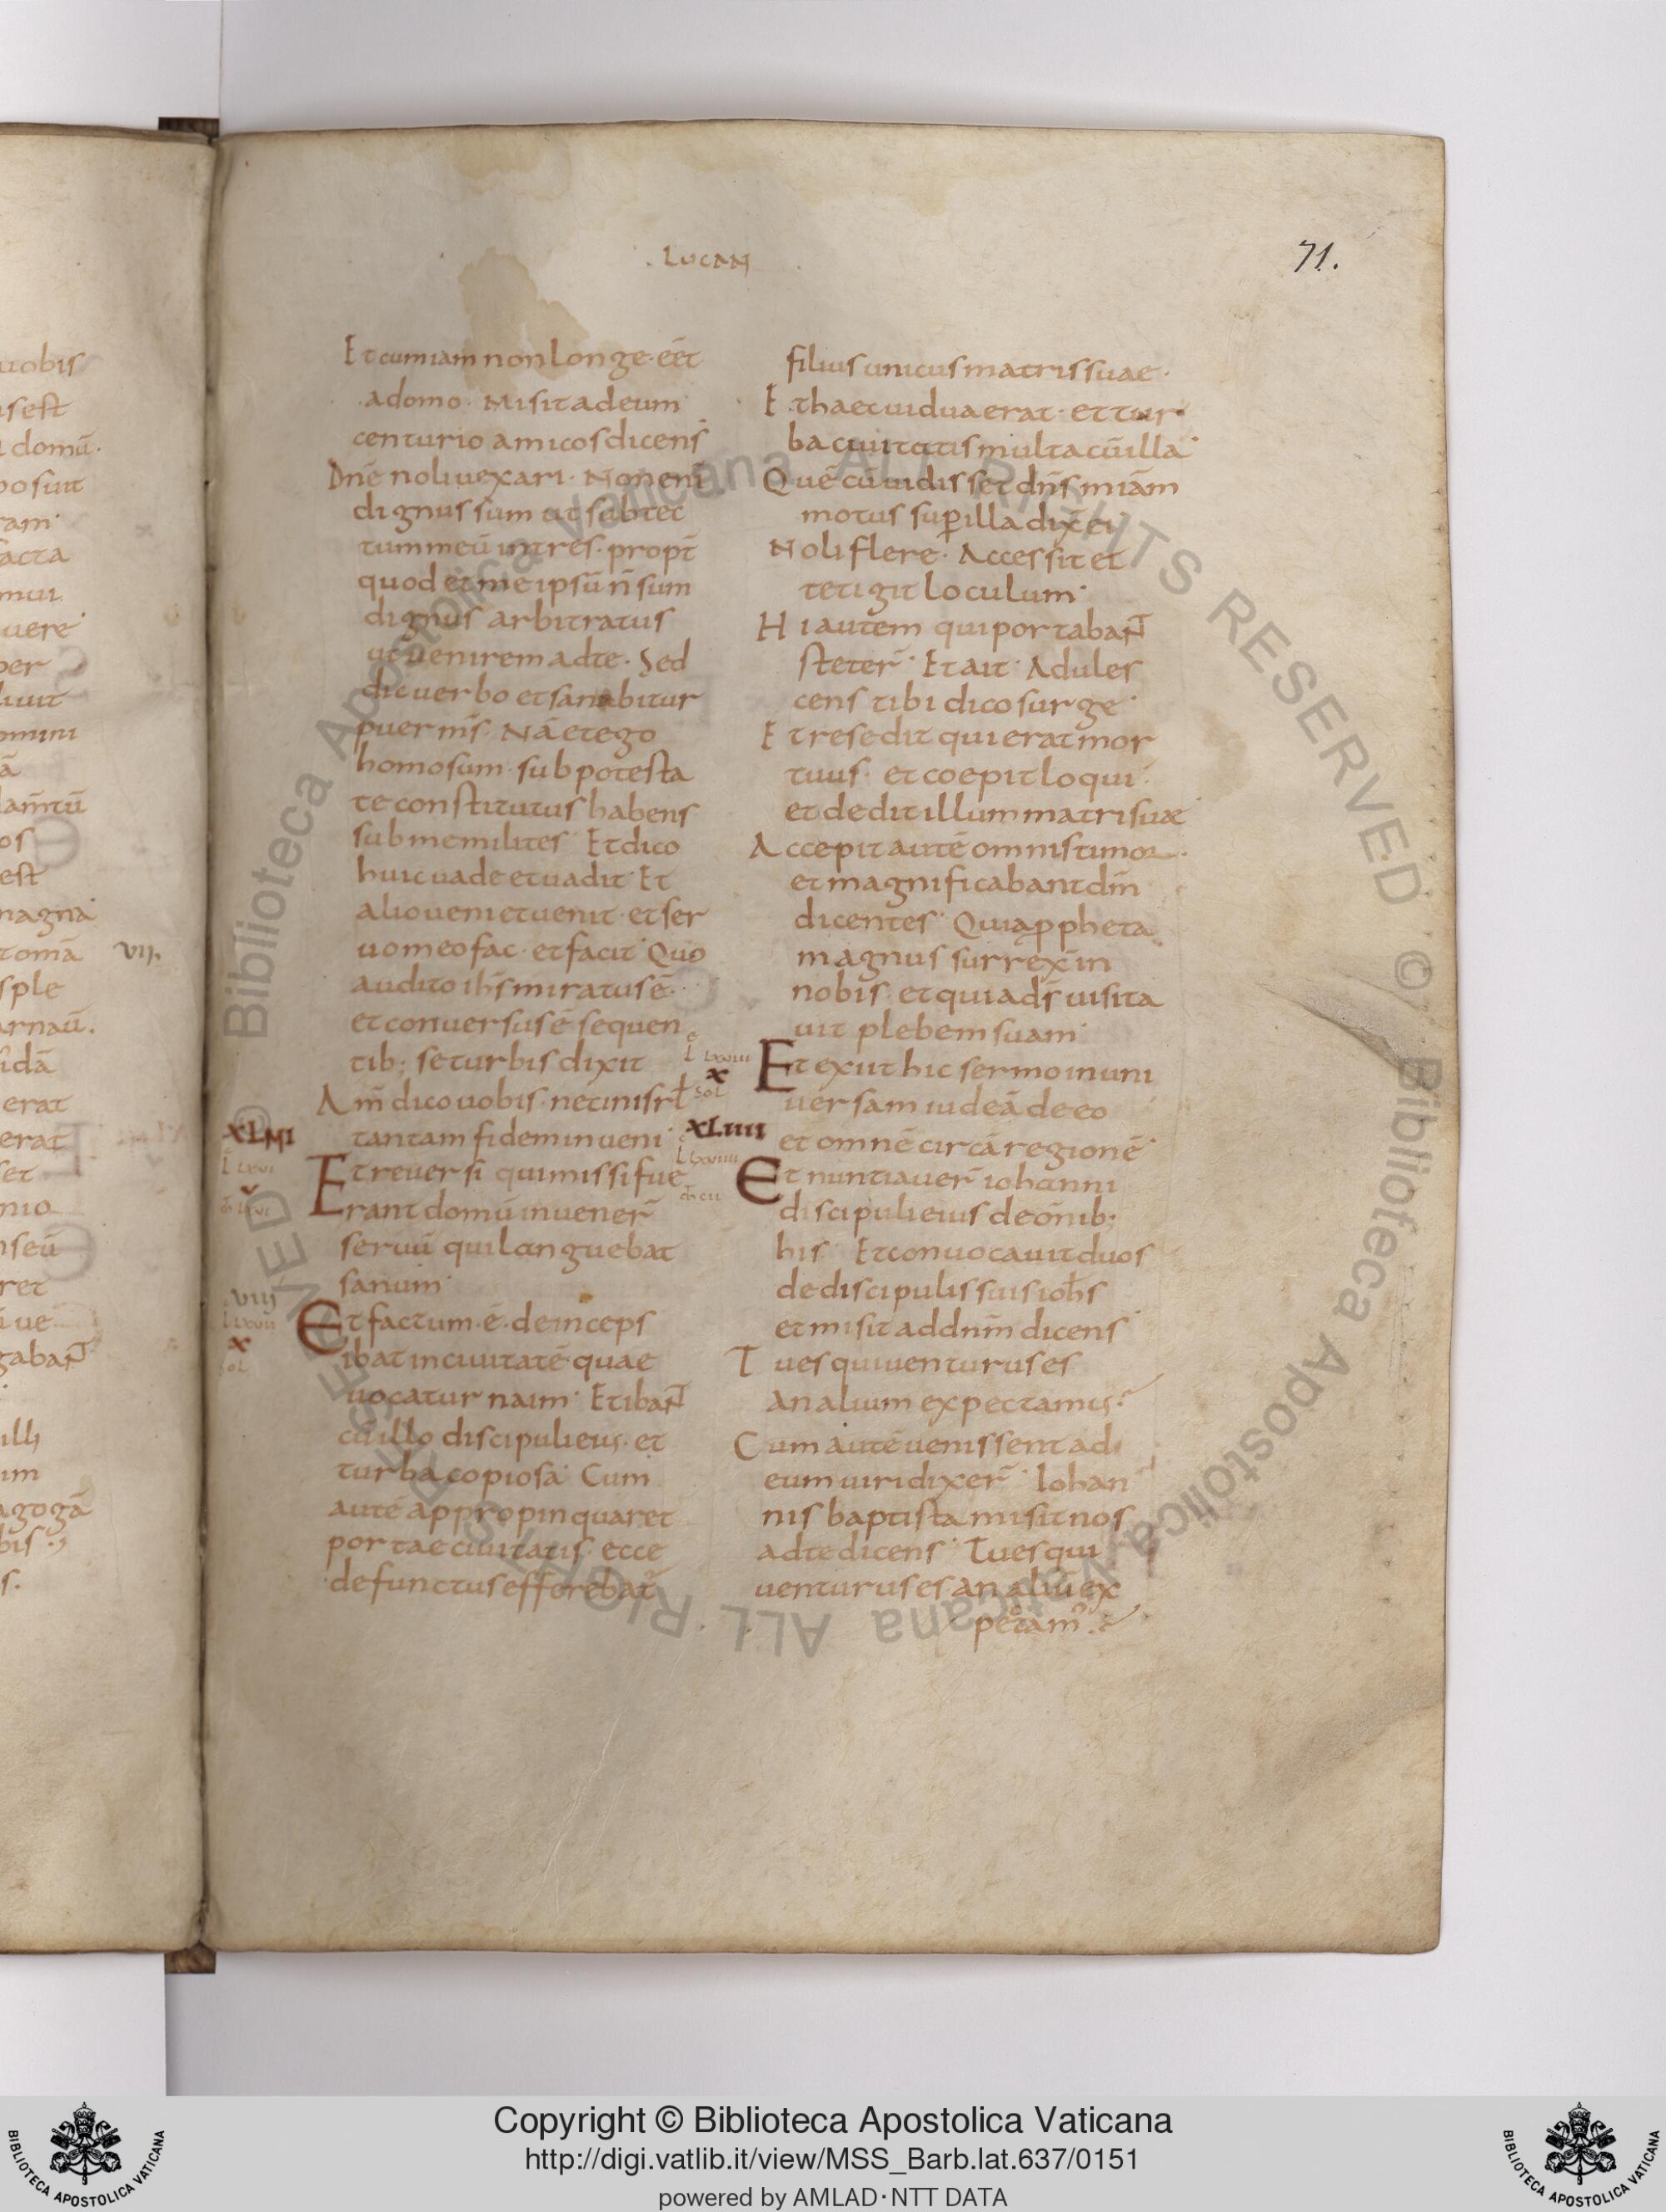 . LUCAN .
71.
Et cum iam non longe· eēt
·a domo· Misit ad eum
centurio amicos dicens·
Dn̄e noli uexari· Non eni
dignus sum ut sub tec
tum meū intres· propt̄
quod et me ipsū n̄ sum
dignus arbitratus
ut uenirem ad te· Sed
dic uerbo et sanabitur
puer ms̄· Nā et ego
homo sum· sub potesta
te constitutus habens
sub me milites· Et dico
huic uade et uadit· Et
alio ueni et uenit· et ser
uo meo fac· et facit· Quo
audito ih̄s miratus ē·
et conuersus ē sequen
tib; se turbis dixit
Am̄ dico uobis· nec in isrł
tantam fidem inueni·
Et reuersi qui missi fue
rant domū inuener̄
seruū qui languebat
sanum·
Et factum· ē· deinceps
ibat in ciuitatē quae
uocatur naim· Et ibant
cū illo discipuli eius· et
turba copiosa· Cum
autē appropinquaret
portae ciuitatis· ecce
defunctus efferebat̄
XLIII
v
VIII
x
filius unicus matris suae·
Et haec uidua erat· et tur
ba ciuitatis multa cū illa·
Quē cū uidisset dn̄s mīam
motus sup̱ illa dix̄ ei
Noli flere· Accessit et
tetigit loculum·
Hi autem qui portabant
steter̄· Et ait· Adules
cens tibi dico surge·
Et resedit qui erat mor
tuus· et coepit loqui·
et dedit illum matri suae·
Accepit autē omnis timor·
et magnificabant dm̄
dicentes· Quia ꝓpheta
magnus surrex̄ in
nobis· et quia ds̄ uisita
uit plebem suam·
Et exiit hic sermo in uni
uersam iudeā de eo
et omnē circā regionē·
Et nuntiauer̄ iohanni
discipuli eius de om̄ib;
his· Et conuocauit duos
de discipulis suis ioh̄s
et misit ad dnm̄ dicens·
Tu es qui uenturus es
an alium expectamus·
Cum autē uenissent ad
eum uiri dixer̄· Iohan
nis baptista misit nos
ad te dicens· Tu es qui
uenturus es an aliū ex
pectam᾽·
x
XLIIII
uobis
sest
domū·
posuit
ram·
facta
uere·
per
liuit
omini
est
magna·
tomā
VII.
sple
arnaū.
idā
erat
erat
set
nio
ret
gabant
illi
im
agogā
bis·
s.
© Biblioteca Apostolica Vaticana ALL RIGHTS RESERVED © Biblioteca Apostolica Vaticana ALL RIGHTS RESERVED
Copyright © Biblioteca Apostolica Vaticana
http://digi.vatlib.it/view/MSS_Barb.lat.637/0151
powered by AMLAD·NTT DATA
BIBLIOTECA APOSTOLICA VATICANA
BIBLIOTECA APOSTOLICA VATICANA